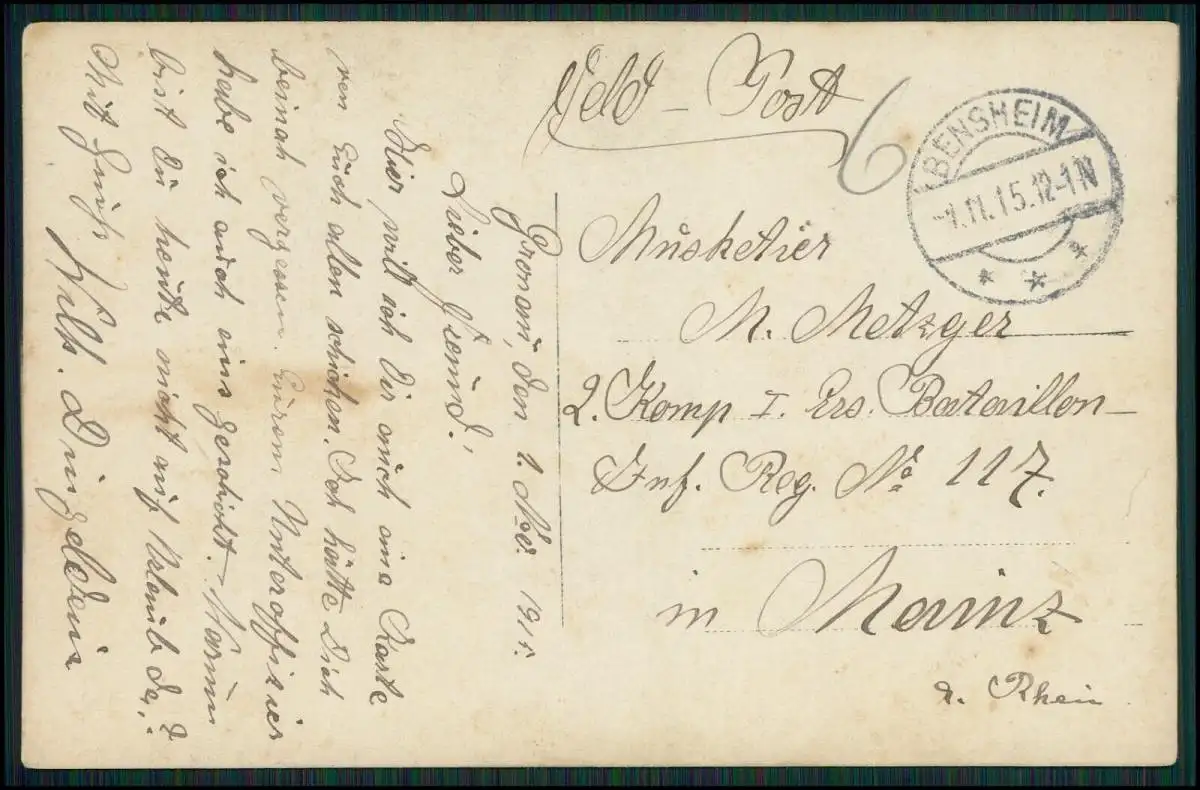 Feld-Post
6
BENSHEIM
-1.11.15.12-1N
Musketier
M. Metzger
2. Komp I. Ers. Bataillon
Inf. Reg. No 117.
in Mainz
a. Rhein
Gronau, den 1. Nov. 1915.
Lieber Freund!
Hier will ich Dir auch eine Karte
von Euch allen schicken. Ich hätte Dich
beinah vergessen. Eurem Unteroffizier
habe ich auch eins geschickt. Warum
bist Du heute nicht auf Urlaub da?
Mit Gruß
Wilh. Dingeldein